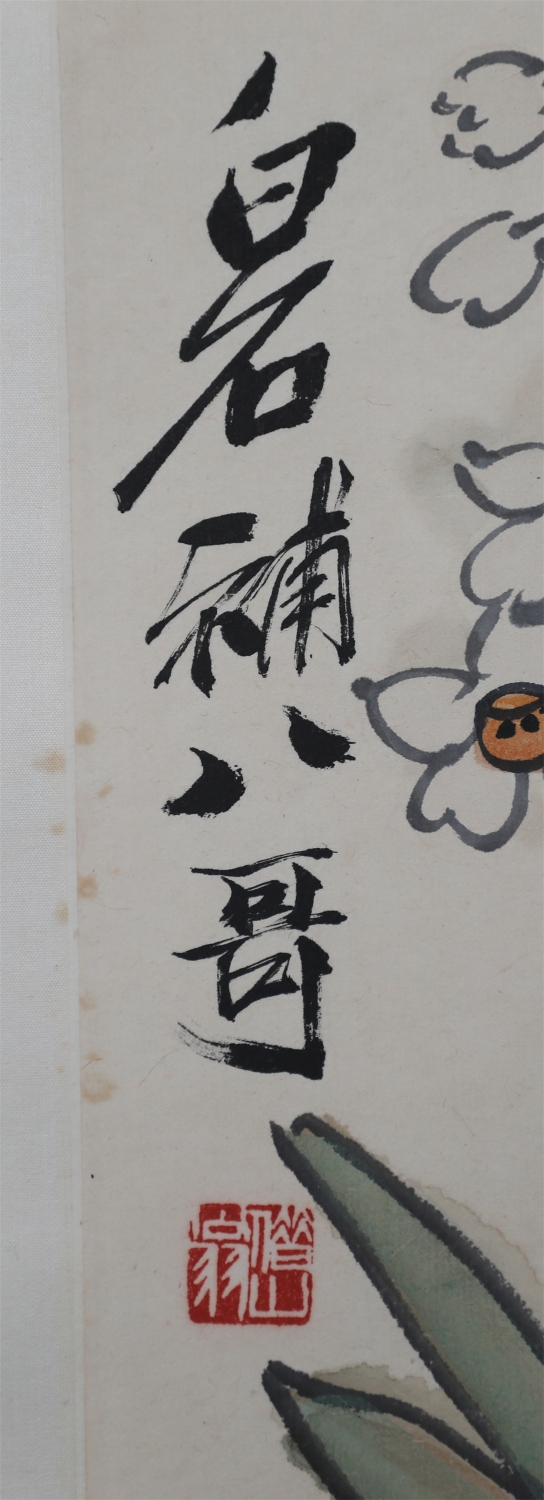 皀石補八哥
借山翁